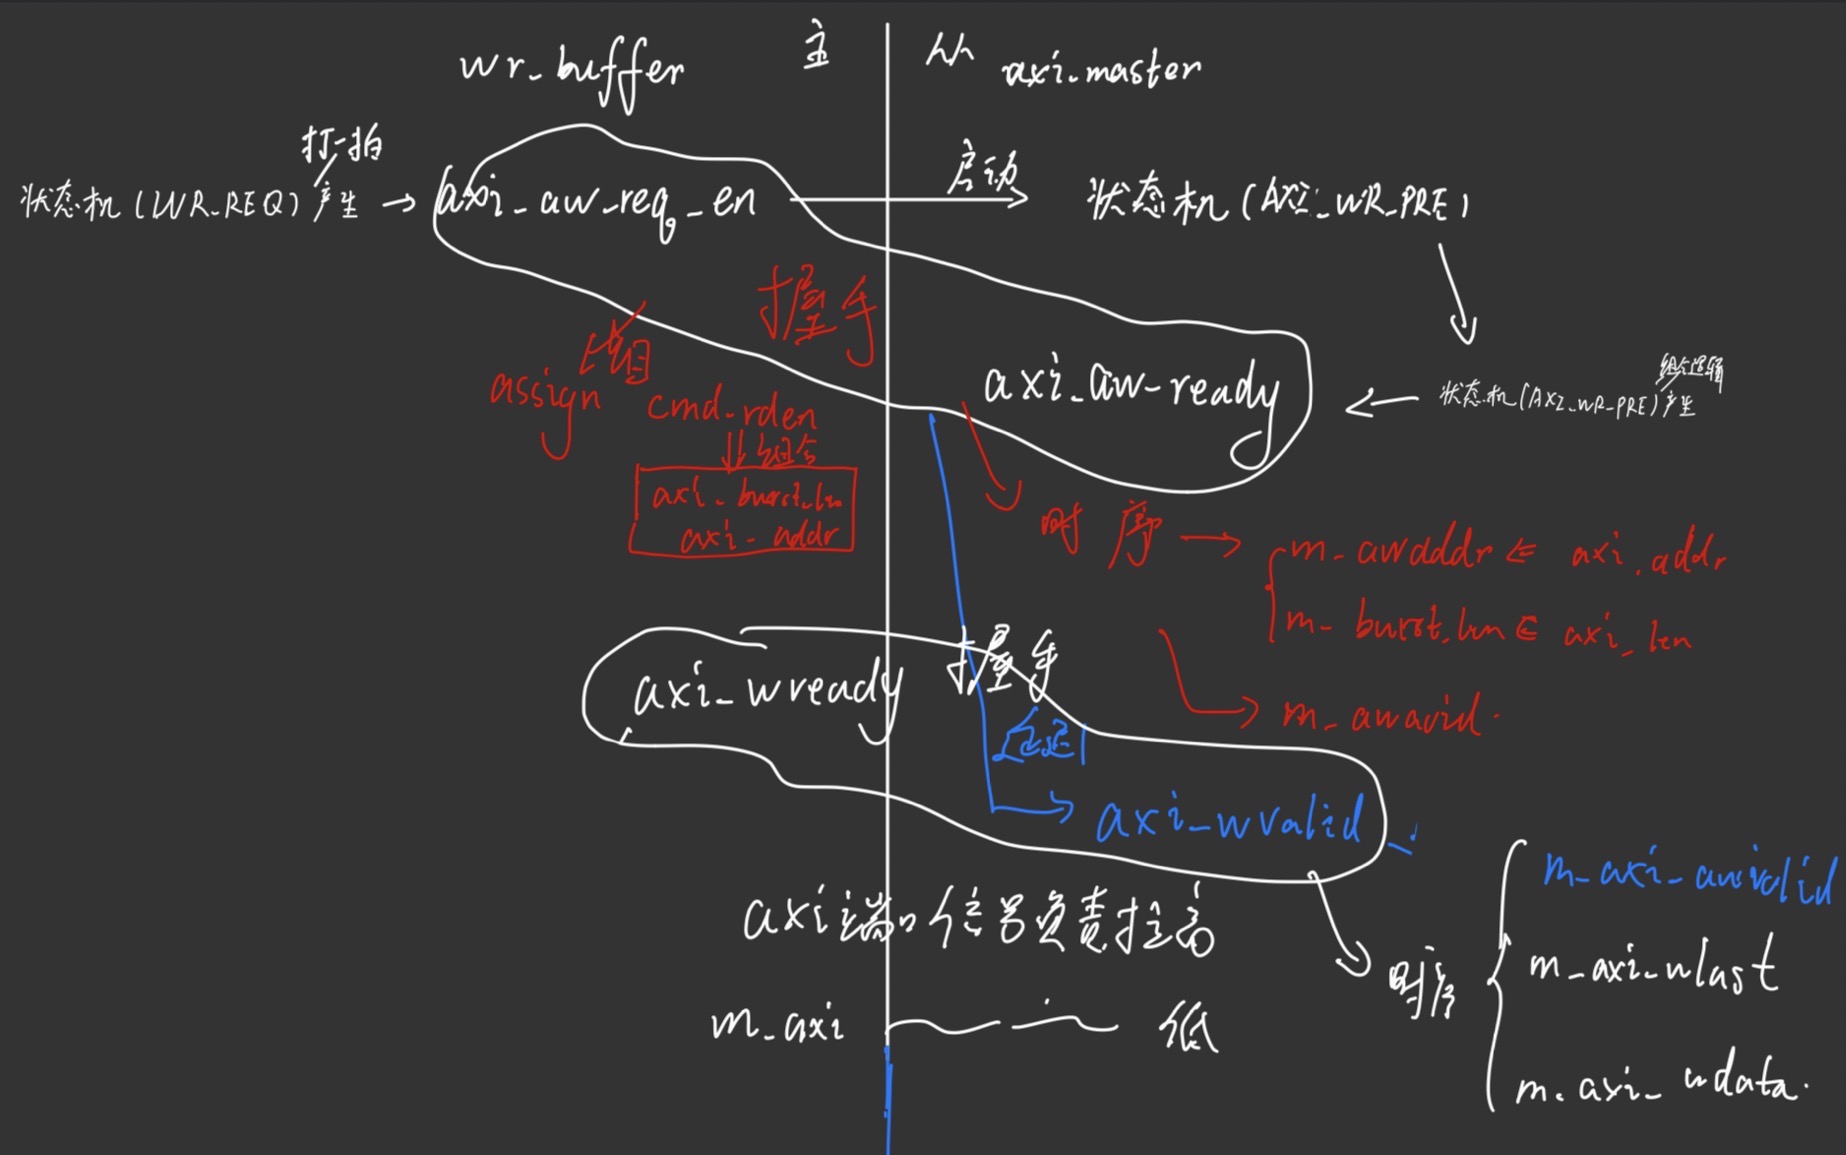 wr_buffer 主 从 axi_master
打一拍
状态机(WR_REQ)产生 → axi_aw_req_en 启动 状态机(AXI_WR_PRE)
握手
组合逻辑
axi_aw_ready ← 状态机(AXI_WR_PRE)产生
assign
cmd_rden
组合
axi_burst_len
axi_addr
时序 → m_awaddr ⇐ axi_addr
m_burst_len ⇐ axi_len
m_awavid.
握手
axi_wready
axi_wvalid
axi端口信号负责拉高
m_axi 低
时序
m_axi_awvalid
m_axi_wlast
m_axi_wdata.